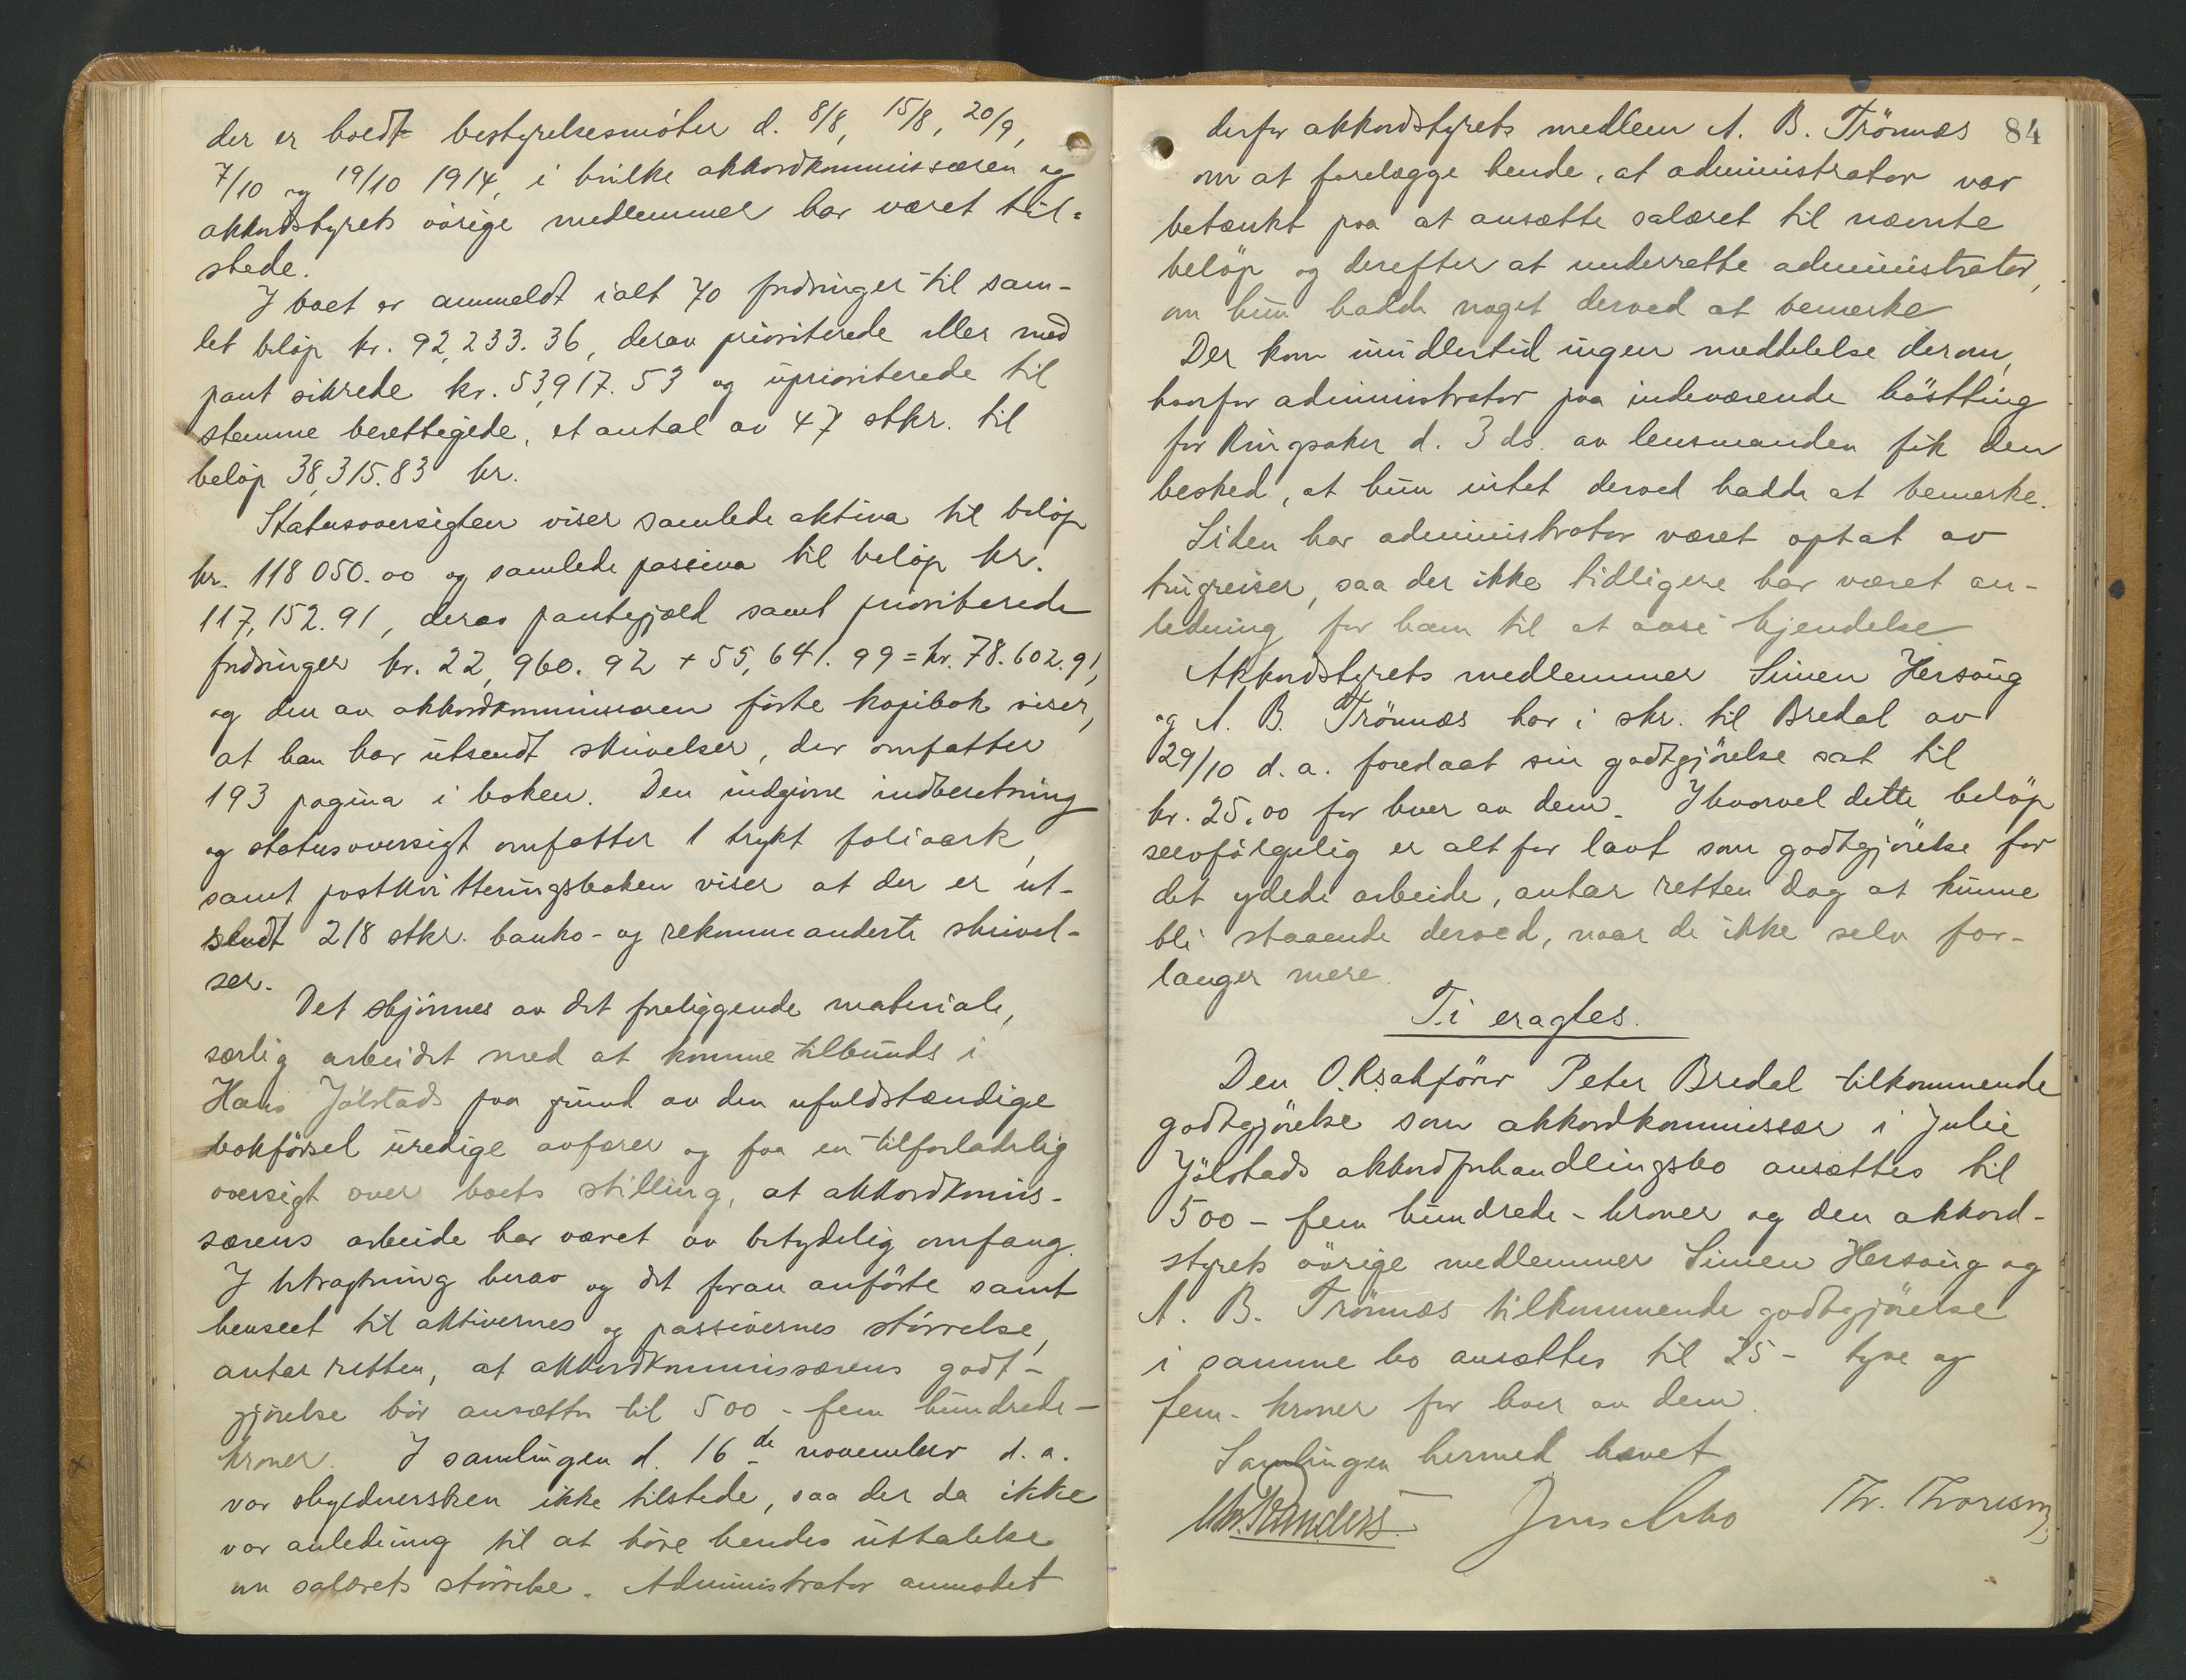 der er holdt bestyrelsesmöter d. 8/8, 15/8, 20/9,
7/10 og 19/10 1914, i hvilke akkordkommissæren og
akkordstyrets övrige medlemmer har været til=
stede.
I boet er anmeldt ialt 70 fordringer til sam-
let belöp kr. 92,233.36, derav prioriterede eller med
pant sikrede kr. 53,917.53 og uprioriterede til
stemme berettigede, et antal av 47 stkr. til
belöp 38,315.83 kr.
Statusoversigten viser samlede aktiva til belöp
kr. 118 050.00 og samlede passiva til belöp kr.
117,152.91, derav pantegjæld samt prioriterede
fordringer kr. 22,960.92 + 55,641.99 = kr. 78.602.91,
og den av akkordkommissæren förte kopibok viser,
at han har utsendt skrivelser, der omfatter
193 pagina i boken. Den indgivne indberetning
og statusoversigt omfatter 1 trykt folioark,
samt postkvitteringsboken viser at der er ut-
sendt 218 stkr. banko- og rekommanderte skrivel-
ser.
Det skjönnes av det foreliggende materiale,
særlig arbeidet med at komme tilbunds i
Hans Jölstads paa grund av den ufuldstændige
bokförsel uredige avfærer og faa en tilforladelig
oversigt over boets stilling, at akkordkomis-
særens arbeide har været av betydelig omfang.
I betragtning herav og det foran anförte samt
henseet til aktivernes og passivernes störrelse,
antar retten, at akkordkommissærens godt-
gjörelse bör ansættes til 500 - fem hundrede -
kroner. I samlingen d. 16de november d. a.
var skyldnersken ikke tilstede, saa der da ikke
var anledning til at höre hendes uttalelse
om salærets störrelse. Administrator anmodet
84
derfor akkordstyrets medlem A. B. Trönnæs
om at forelægge hende, at administrator var
betænkt paa at ansætte salæret til nævnte
belöp og derefter at underrette administrator,
om hun hadde noget derved at bemerke
Der kom imidlertid ingen meddelelse derom,
hvorfor administrator paa indeværende höstting
for Ringsaker d. 3 ds. av lensmanden fik den
besked, at hun intet derved hadde at bemerke.
Siden har administrator været optat av
tingreiser, saa der ikke tidligere har været an-
ledning for ham til at avsi kjendelse
Akkordstyrets medlemmer Simen Hersoug
og A. B. Trönnæs har i skr. til Bredal av
29/10 d. a. foredaat sin godtgjörelse sat til
kr. 25.00 for hver av dem. Ihvorvel dette belöp
selvfölgelig er alt for lavt som godtgjörelse for
det ydede arbeide, antar retten dog at kunne
bli staaende derved, naar de ikke selv for-
langer mere.
Ti eragtes.
Den O.R.sakförer Peter Bredal tilkommende
godtgjörelse som akkordkommissær i Julie
Jölstads akkordforhandlingsbo ansættes til
500 - fem hundrede - kroner og den akkord-
styrets övrige medlemmer Simen Hersoug og
A. B. Trönnæs tilkommende godtgjörelse
i samme bo ansættes til 25 - tyve og
fem - kroner for hver av dem.
Samlingen hermed hævet
Randers. Th.